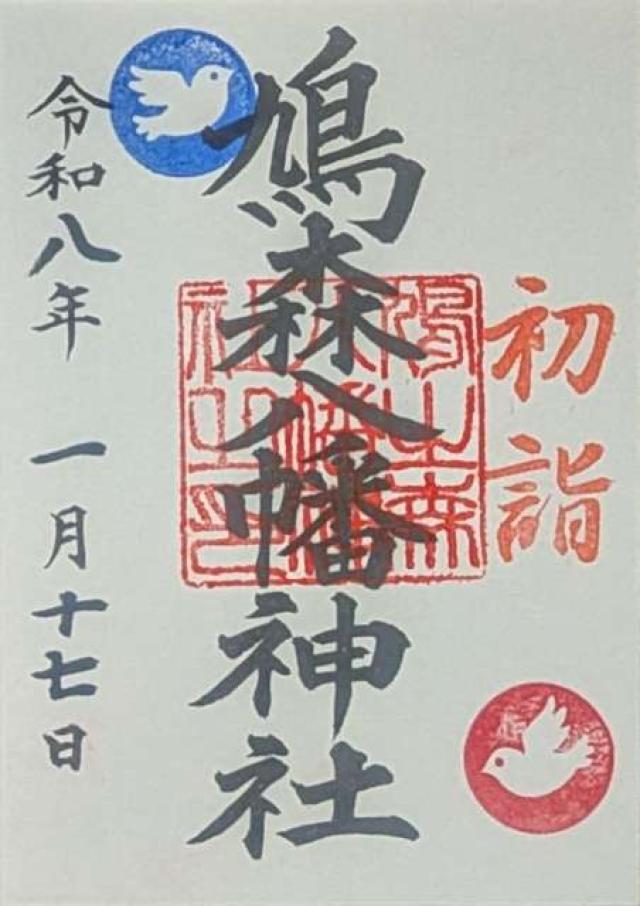 初詣
鳩森八幡神社
令和八年 一月十七日